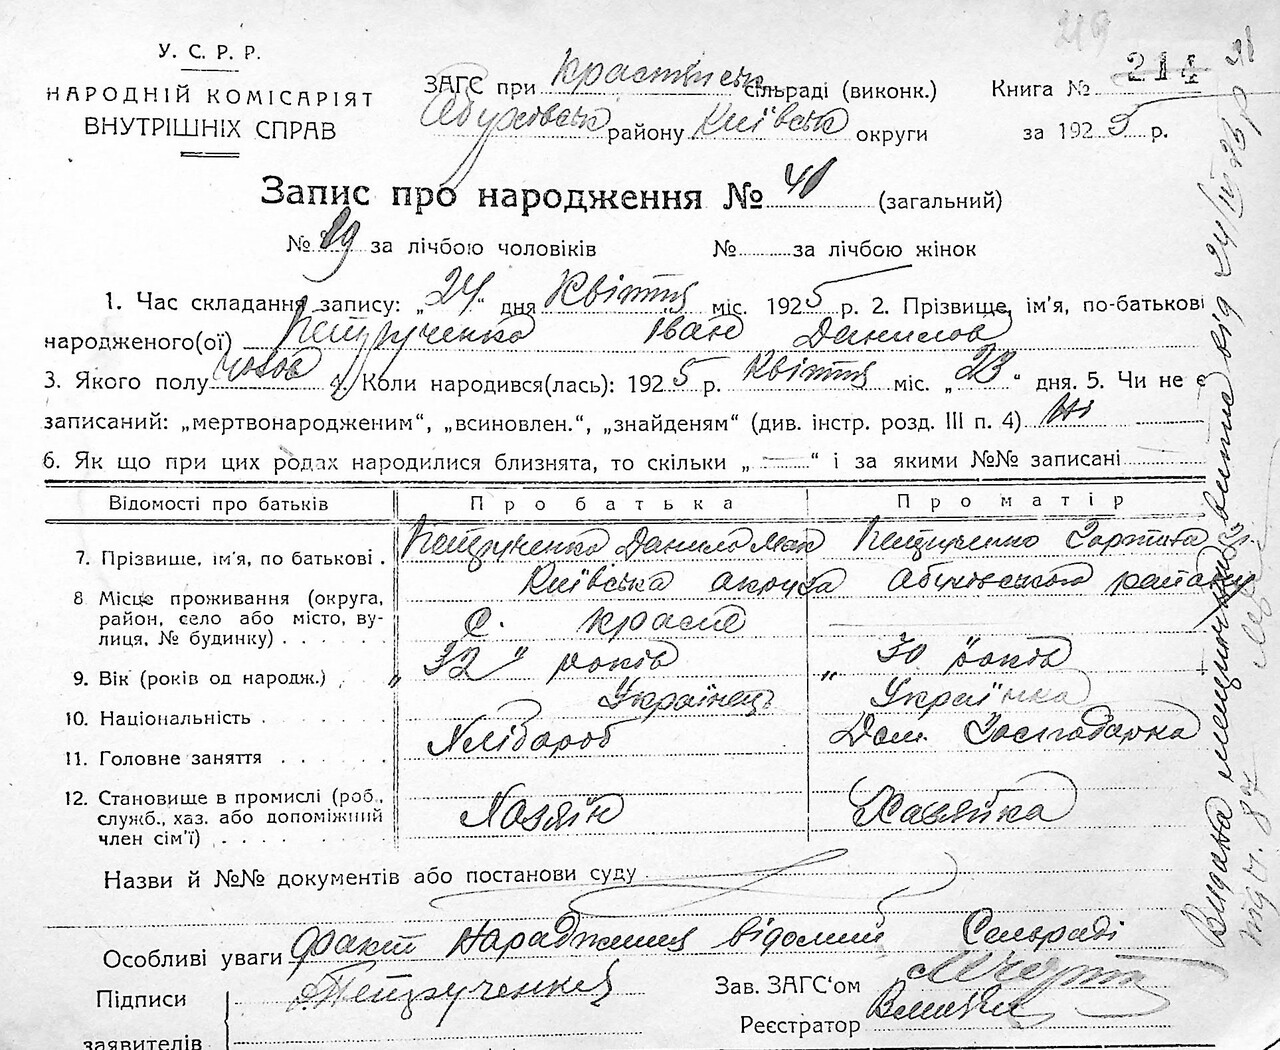 219
У. С. Р. Р.
НАРОДНІЙ КОМІСАРІЯТ
ВНУТРІШНІХ СПРАВ
ЗАГС при сільраді (виконк.)
Абухівська району Київська округи
Книга № 214
за 1925 р.
Запис про народження № 41 (загальний)
№ 29 за лічбою чоловіків № за лічбою жінок
1. Час складання запису: „24" дня Квітня міс. 1925 р. 2. Прізвище, ім'я, по-батькові
народженого(ої) Петрученко Іван Данилов
3. Якого полу чолов 4. Коли народився(лась): 1925 р. Квітня міс. „23" дня. 5. Чи не є
записаний: „мертвонародженим", „всиновлен.", „знайденям" (див. інстр. розд. III п. 4) Ні
6. Як що при цих родах народилися близнята, то скільки „ " і за якими №№ записані
Відомості про батьків Про батька Про матір
7. Прізвище, ім'я, по батькові . Петрученко Данило Петрученко
8 Місце проживання (округа, Київська округа Абухівського району
район, село або місто, ву- с. Красне
лиця, № будинку) . . . .
9. Вік (років од народж.) . „ 32 " років „ 30 років
10. Національність . . . . . Українець Українка
11. Головне заняття . . . . . Хлібороб Дом. Господарка
12. Становище в промислі (роб.,
служб., хаз. або допоміжний Хазяїн Хазяйка
член сім'ї) . . . . . . .
Назви й №№ документів або постанови суду
Особливі уваги факт народження відомий Сельраді
Підписи Петрученко
заявителів
Зав. ЗАГС'ом
Реєстратор
Видана виписка від 24/